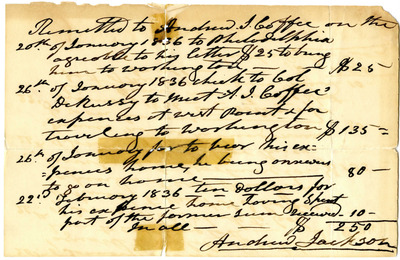 Remitted to Andrew J. Coffee on the
20th of January 1836 to Philadelphia
agreable to his letter $25 to bring
him to Washington $25
26th of January 1836 check to Col
DeRussy to meet A J. Coffee's
expences at west Point & for
traveling to Washington $135-
26th of January for to bear his ex-
pences home, he being anxious
to go on home 80-
22d of February 1836 ten dollars for
his expence home having spent
part of the former sum received -10-
In all - $250
Andrew Jackson